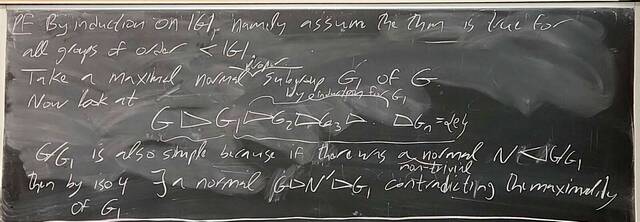 Pf By induction on |G|, namely assume the thm is true for
all groups of order < |G|.
Take a maximal normal proper subgroup G₁ of G
Now look at by induction for G₁
G ▷ G₁ ▷ G₂ ▷ G₃ ▷ ▷ Gₙ = {e}
G/G₁ is also simple because if there was a normal non-trivial N ◁ G/G₁
then by iso 4 ∃ a normal G ▷ N' ▷ G₁ contradicting the maximality
of G₁